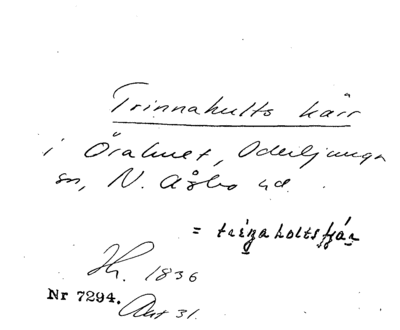 Trinnahults kärr
i Örahult, Oderljunga
sn, N. Åsbo hd.
= trinaholtsçär
Hr. 1836
Nr 7294. Akt 31.